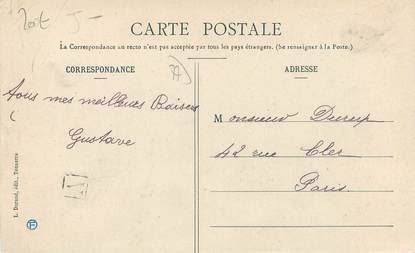 CARTE POSTALE
La Correspondance au recto n'est pas acceptée par tous les pays étrangers. (Se renseigner à la Poste.)
CORRESPONDANCE
ADRESSE
Tous mes meilleurs Baisers
Gustave
Monsieur
42 rue Cler
Paris
L. Durand, édit., Tonnerre